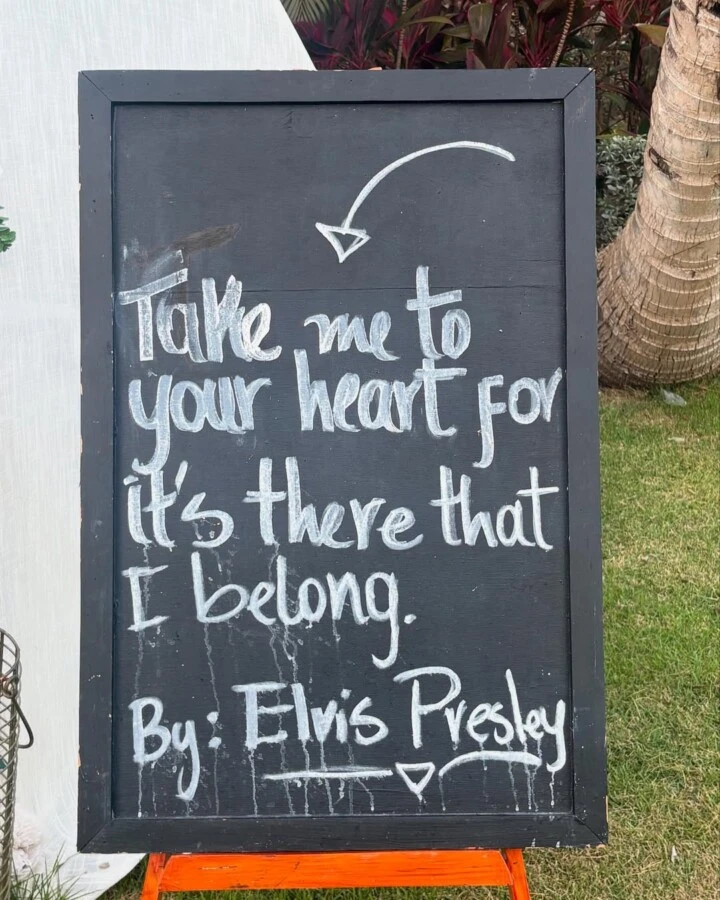 Take me to
your heart for
it's there that
I belong.
By: Elvis Presley